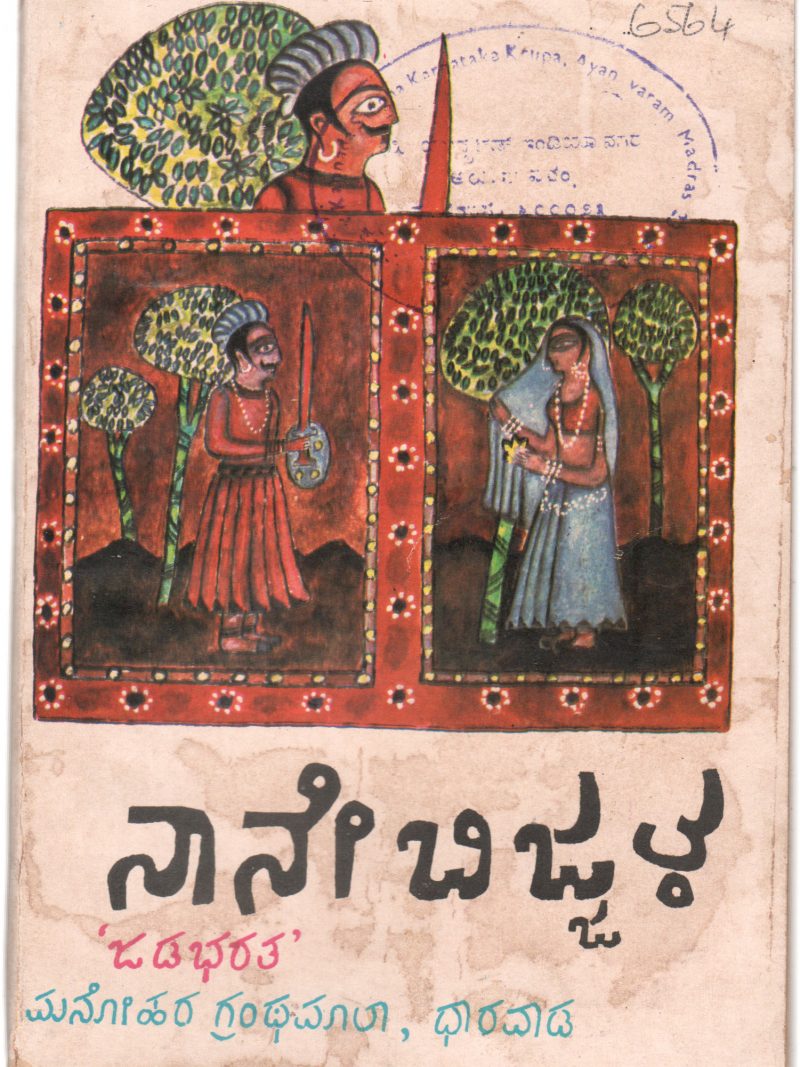 6564
Karnataka Krupa, Ayanavaram Madras
ನಾನೇ ಬಿಜ್ಜಳ
'ಜಡಭರತ'
ಮನೋಹರ ಗ್ರಂಥಮಾಲಾ, ಧಾರವಾಡ